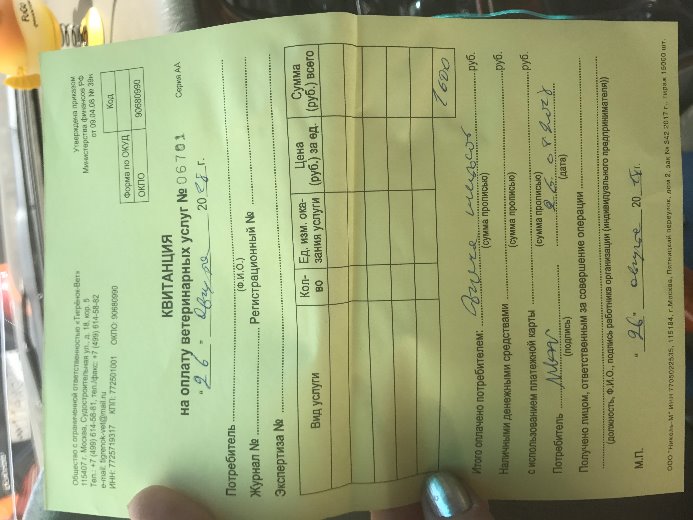 Общество с ограниченной ответственностью «Тигрёнок-Вет»
115407 г. Москва, Судостроительная ул., д. 18, кор. 5
Тел.: +7 (499) 614-58-81, тел./факс: +7 (499) 614-58-82
e-mail: tigrenok-vet@mail.ru
ИНН: 7725719317 КПП: 772501001 ОКПО: 90680990
Утверждена приказом
Министерства финансов РФ
от 09.04.08 № 39н
Код
Форма по ОКУД
ОКПО 90680990
КВИТАНЦИЯ
на оплату ветеринарных услуг № 06701 Серия АА
" 26 " августа 20 г.
Потребитель
(Ф.И.О.)
Журнал № Регистрационный №
Экспертиза №
Вид услуги Кол-во Ед. изм. оказания услуги Цена (руб.) за ед. Сумма (руб.) всего
1600
Итого оплачено потребителем: руб.
(сумма прописью)
Наличными денежными средствами руб.
(сумма прописью)
с использованием платежной карты руб.
(сумма прописью)
Потребитель 26.08
(подпись) (дата)
Получено лицом, ответственным за совершение операции
(должность, Ф.И.О., подпись работника организации (индивидуального предпринимателя))
М.П. " 26 " августа 20 г.
ООО "Николь М" ИНН 7705022535, 115184, г. Москва, Пятницкий переулок, дом 2, зак № 342 2017 г., тираж 15000 шт.